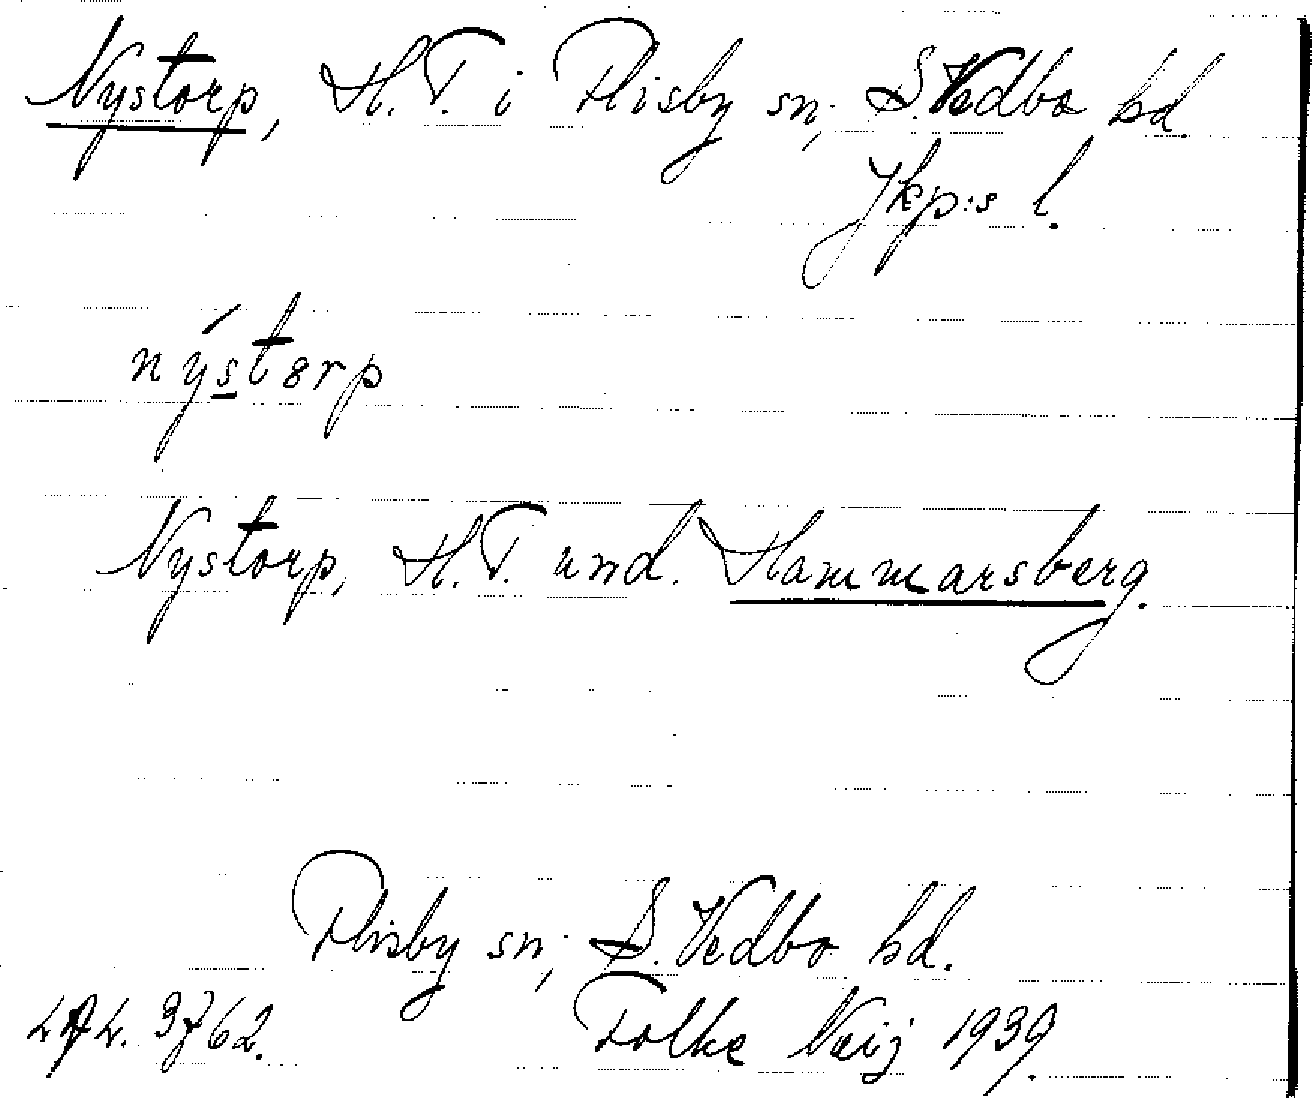 Nystorp, H.T. i Flisby sn; S. Vedbo hd.
Jkp:s l.
nýstɵrp
Nystorp, H.T. und. Hammarsberg.
Flisby sn; S. Vedbo hd.
3762. Folke Neij 1939.